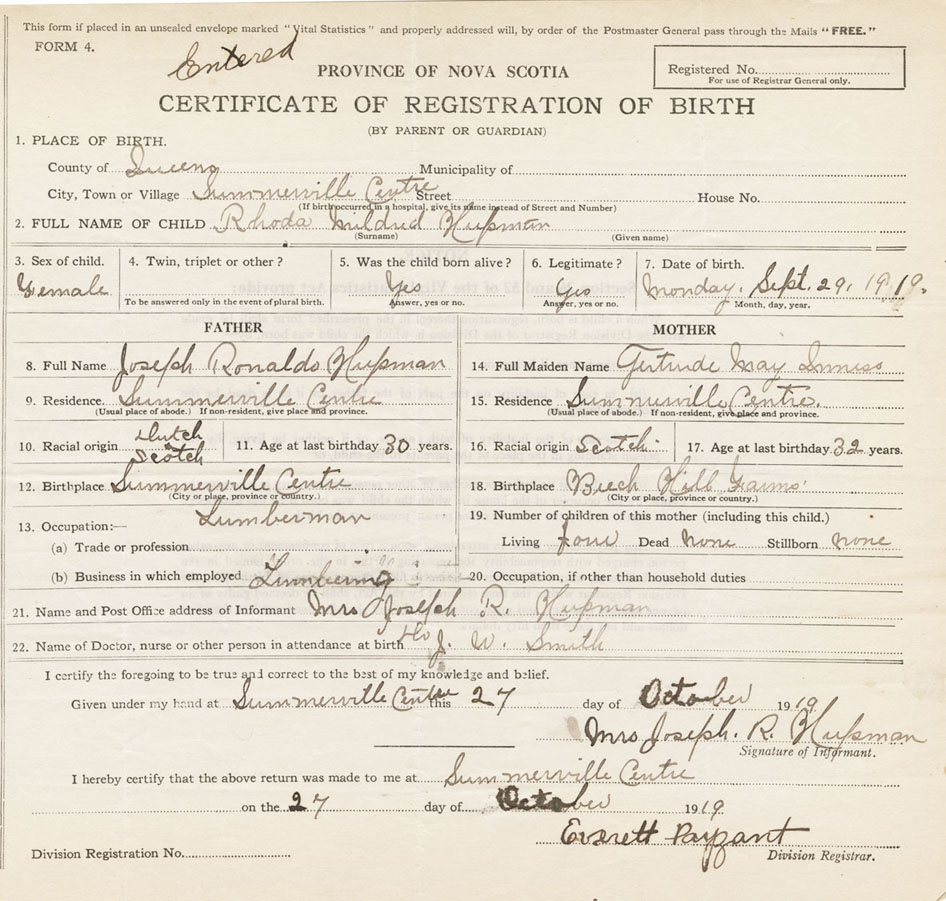 This form if placed in an unsealed envelope marked "Vital Statistics" and properly addressed will, by order of the Postmaster General pass through the Mails "FREE."
FORM 4.
Entered
PROVINCE OF NOVA SCOTIA
Registered No.
For use of Registrar General only.
CERTIFICATE OF REGISTRATION OF BIRTH
(BY PARENT OR GUARDIAN)
1. PLACE OF BIRTH.
County of Queens Municipality of
City, Town or Village Summerville Centre Street House No.
(If birth occurred in a hospital, give its name instead of Street and Number)
2. FULL NAME OF CHILD Rhoda Mildred Hupman
(Surname) (Given name)
3. Sex of child. 4. Twin, triplet or other? 5. Was the child born alive? 6. Legitimate? 7. Date of birth.
Female Yes Yes Monday. Sept. 29, 1919.
To be answered only in the event of plural birth. Answer, yes or no. Answer, yes or no. Month, day, year.
FATHER MOTHER
8. Full Name Joseph Ronaldo Hupman 14. Full Maiden Name Gertrude May Inness
9. Residence. Summerville Centre 15. Residence Summerville Centre.
(Usual place of abode.) If non-resident, give place and province. (Usual place of abode.) If non-resident, give place and province.
10. Racial origin Dutch Scotch 11. Age at last birthday 30 years. 16. Racial origin Scotch 17. Age at last birthday 32 years.
12. Birthplace Summerville Centre 18. Birthplace Beech Hill Farms
(City or place, province or country.) (City or place, province or country.)
13. Occupation:— Lumberman 19. Number of children of this mother (including this child.)
(a) Trade or profession Living four Dead none Stillborn none
(b) Business in which employed Lumbering 20. Occupation, if other than household duties
21. Name and Post Office address of Informant Mrs Joseph R. Hupman
22. Name of Doctor, nurse or other person in attendance at birth J. W. Smith
I certify the foregoing to be true and correct to the best of my knowledge and belief.
Given under my hand at Summerville Centre this 27 day of October 1919
Mrs Joseph. R. Hupman
Signature of Informant.
I hereby certify that the above return was made to me at Summerville Centre
on the 27 day of October 1919
Everett Payzant
Division Registration No. Division Registrar.